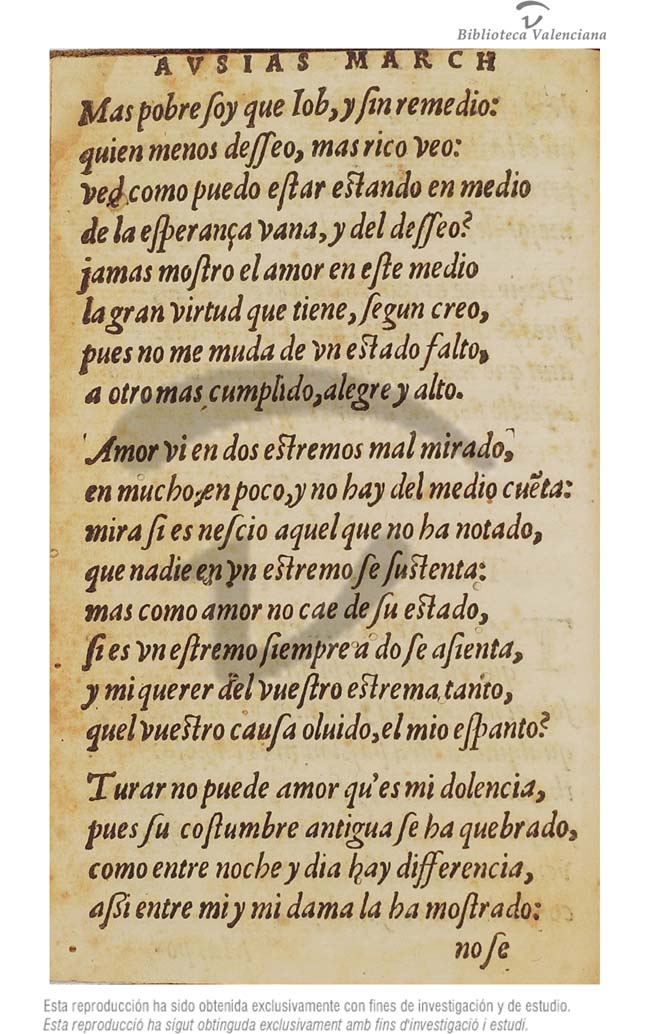 Biblioteca Valenciana
AVSIAS MARCH
Mas pobre ſoy que Iob, y ſin remedio:
quien menos deſſeo, mas rico veo:
ved como puedo eſtar eſtando en medio
de la eſperança vana, y del deſſeo?
jamas moſtro el amor en eſte medio
la gran virtud que tiene, ſegun creo,
pues no me muda de vn eſtado falto,
a otro mas cumplido, alegre y alto.
Amor vi en dos eſtremos mal mirado,
en mucho, en poco, y no hay del medio cuẽta:
mira ſi es neſcio aquel que no ha notado,
que nadie en vn eſtremo ſe ſuſtenta:
mas como amor no cae de ſu eſtado,
ſi es vn eſtremo ſiempre a do ſe aſienta,
y mi querer del vueſtro eſtrema tanto,
quel vueſtro cauſa oluido, el mio eſpanto?
Turar no puede amor qu'es mi dolencia,
pues ſu coſtumbre antigua ſe ha quebrado,
como entre noche y dia hay differencia,
aſsi entre mi y mi dama la ha moſtrado:
no ſe
Esta reproducción ha sido obtenida exclusivamente con fines de investigación y de estudio.
Esta reproducció ha sigut obtinguda exclusivament amb fins d'investigació i estudi.